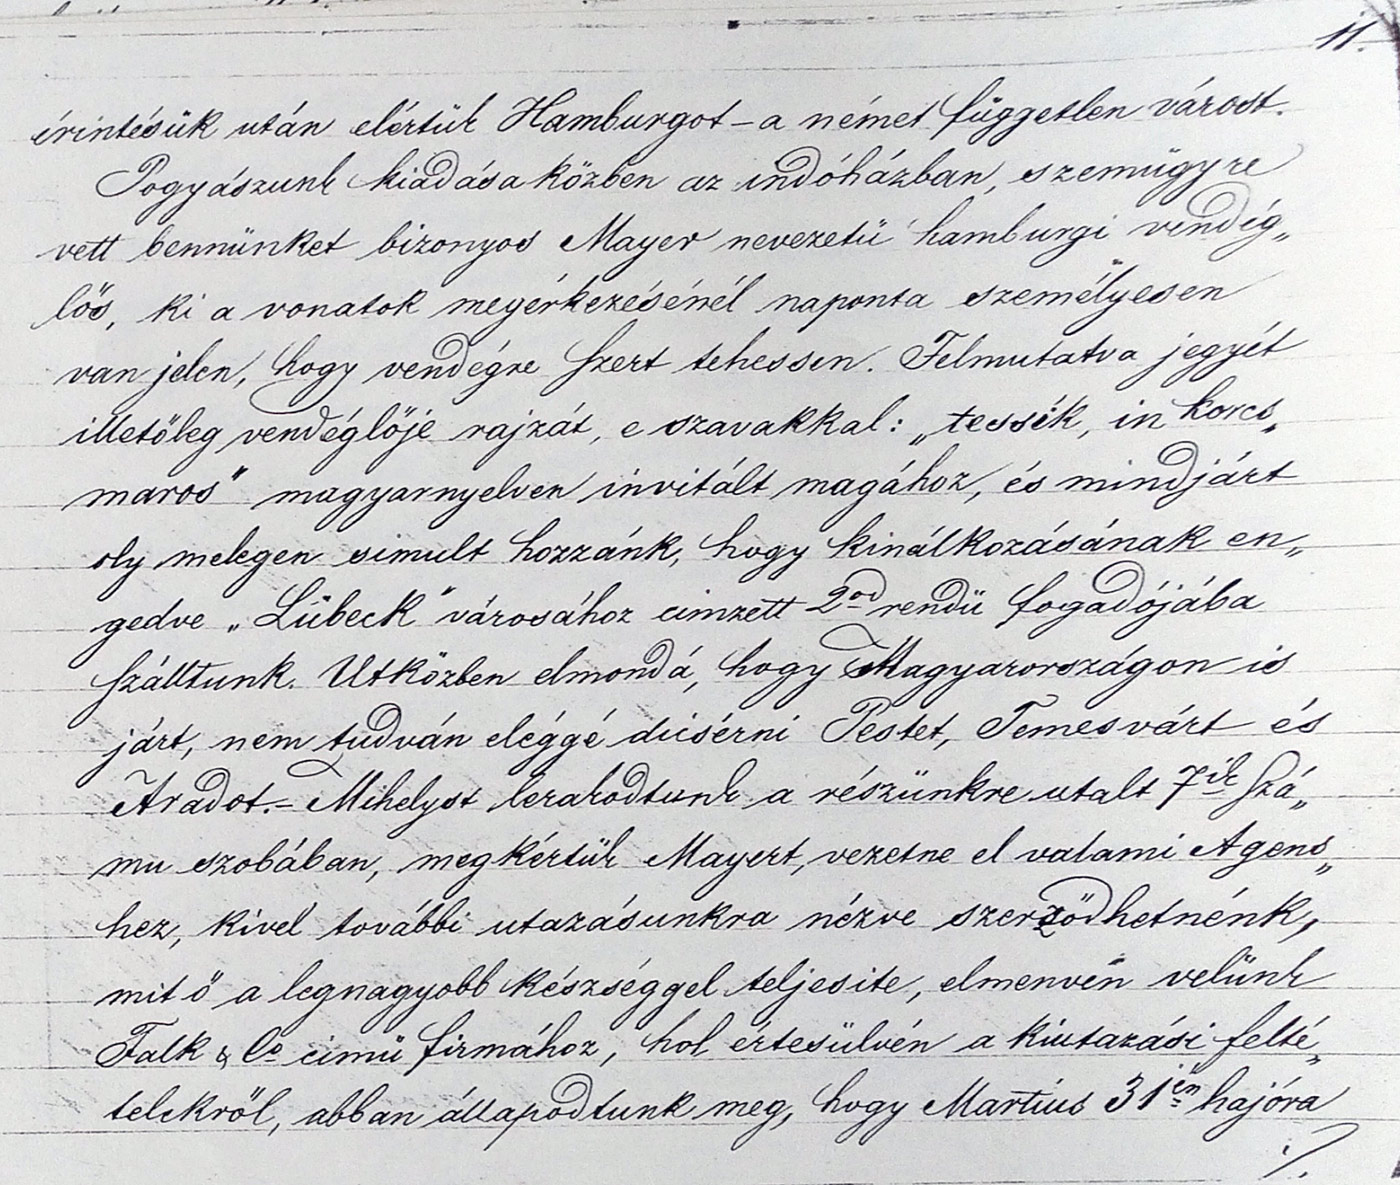 11.
érintésük után elértük Hamburgot – a német független várost.
Pogyászunk kiadása közben az indóházban, szemügyre
vett bennünket bizonyos Mayer nevezetü hamburgi vendég„
lős, ki a vonatok megérkezésénél naponta személyesen
van jelen, hogy vendégre szert tehessen. Felmutatva jegyét
illetőleg vendéglőjé rajzát, e szavakkal: „tessék, in korcs„
maros" magyarnyelven invitált magához, és mindjárt
oly melegen simult hozzánk, hogy kinálkozásának en„
gedve „Lübeck" városához cimzett 2od rendü fogadójába
szálltunk. Utközben elmondá, hogy Magyarországon is
járt, nem tudván eléggé dicsérni Pestet, Temesvárt és
Aradot. – Mihelyst lerakodtunk a részünkre utalt 7ik szá„
mu szobában, megkértük Mayert, vezetne el valami Agens„
hez, kivel további utazásunkra nézve szerződhetnénk,
mit ő a legnagyobb készséggel teljesite, elmenvén velünk
Falk & Co cimü firmához, hol értesülvén a kiutazási felté„
telekről, abban állapodtunk meg, hogy Martius 31én hajóra
./.